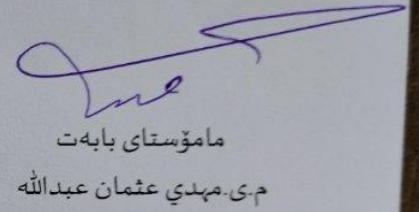 مامۆستای بابەت
م.ی.مهدي عثمان عبدالله